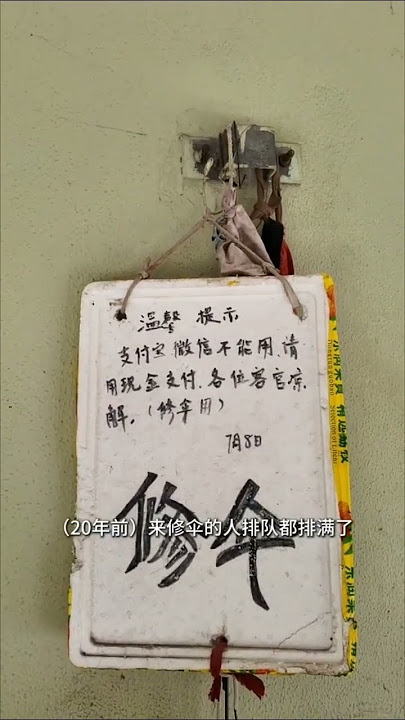 温馨 提示
支付宝 微信不能用、请
用现金支付、各位客官凉
解。(修伞用)
7月8日
修伞
(20年前)来修伞的人排队都排满了